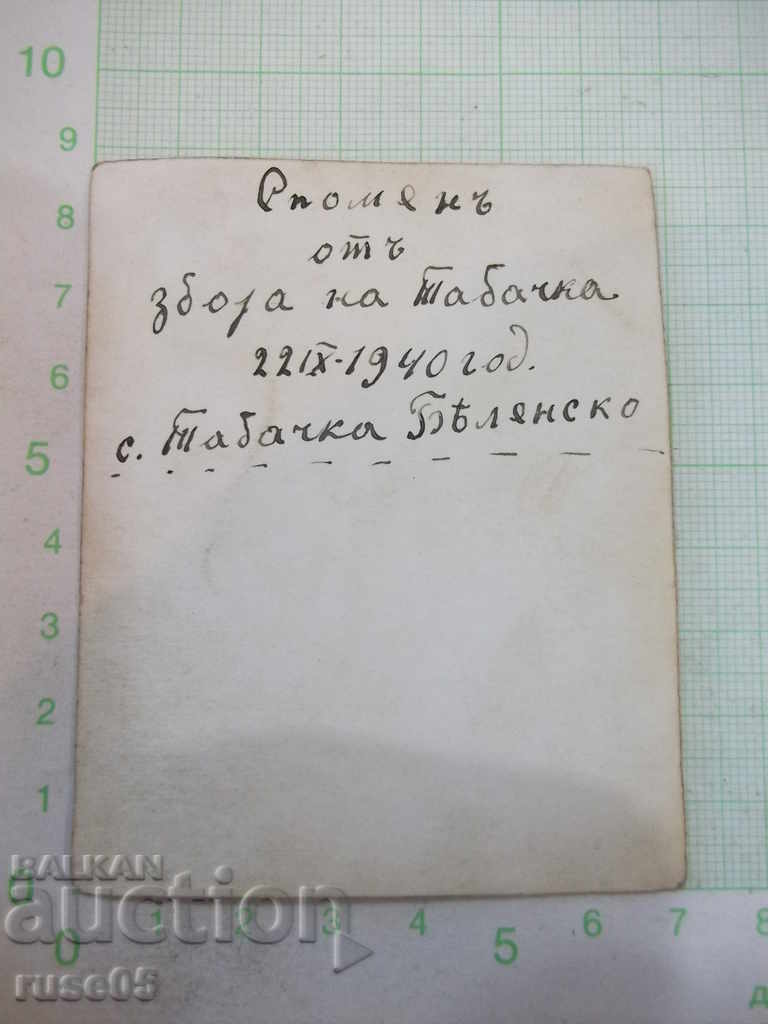 10
9
8
7
6
5
4
3
2
1
0
Споменъ
отъ
збора на Табачка
22IX-1940 год.
с. Табачка Бѣленско
BALKAN
auction
ruse05
0 1 2 3 4 5 6 7 8